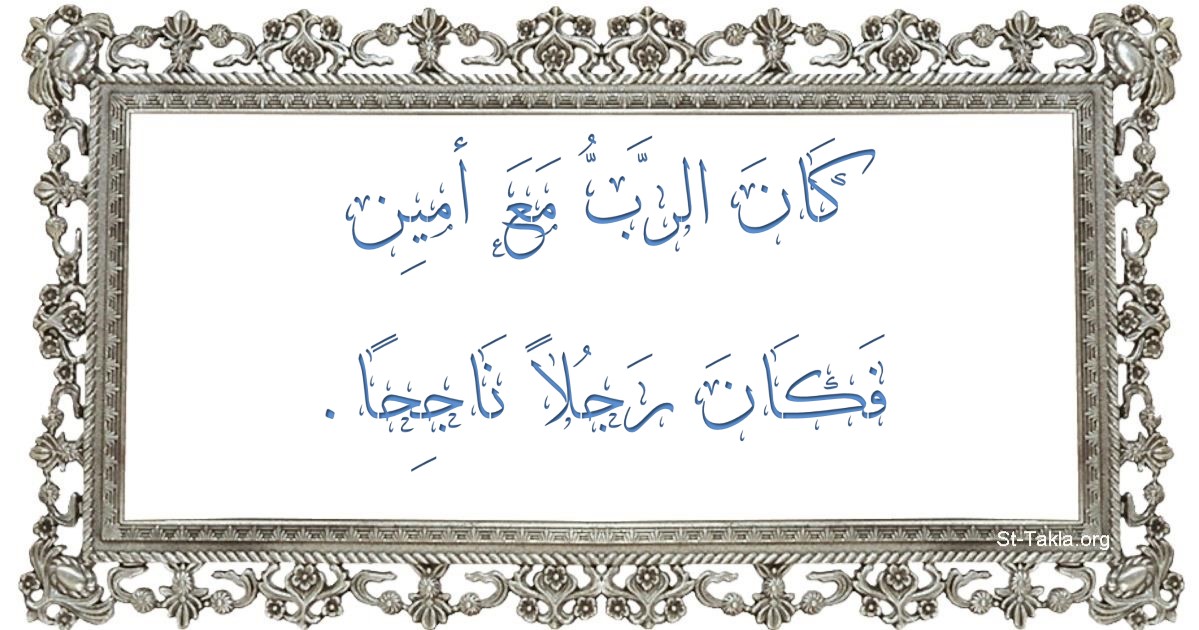 كَانَ الرَّبُّ مَعَ أمِين
فَكَانَ رَجُلاً نَاجِحًا .
St-Takla.org